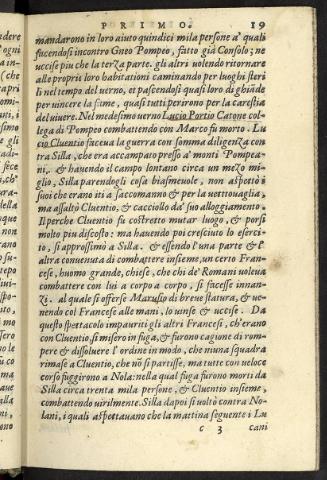 PRIMO. 19
mandarono in loro aiuto quindici mila persone a' quali
facendosi incontro Gneo Pompeo, fatto già Consolo; ne
uccise piu che la terza parte. gli altri uolendo ritornare
alle proprie loro habitationi caminando per luoghi steri
li nel tempo del uerno, et pascendosi quasi loro di ghiāde
per vincere la fame, quasi tutti perirono per la carestia
del uiuere. Nel medesimo uerno Lucio Portio Catone col-
lega di Pompeo combattendo con Marco fu morto. Lu
cio Cluentio faceua la guerra con somma diligenza con
tra Silla, che era accampato presso a' monti Pompea-
ni, & hauendo il campo lontano circa un mezo mi-
glio, Silla parendogli cosa biasmeuole, non aspettò i
suoi che erano iti a saccomanno & per la uettouaglia,
ma assaltò Cluentio, & cacciollo da' suo alloggiamento.
Il perche Cluentio fu costretto mutar luogo, & porsi
molto piu discosto: ma hauendo poi cresciuto lo eserci-
to, si approssimò a Silla. & essendo l'una parte & l'
altra conuenuta di combattere insieme, un certo Fran-
cese, huomo grande, chiese, che chi de' Romani uoleua
combattere con lui a corpo a corpo, si facesse innan-
zi. al quale si offerse Marusio di breue statura, & ue-
nendo col Francese alle mani, lo uinse & uccise. Da
questo spettacolo impauriti gli altri Francesi, ch'erano
con Cluentio, si misero in fuga, & furono cagione di rom-
pere & dissoluere l'ordine in modo, che niuna squadra
rimase a Cluentio, che nō si partisse, ma tutte con veloce
corso fuggirono a Nola: nella qual fuga furono morti da
Silla circa trenta mila persone, & Cluentio insieme,
combattendo uirilmente. Silla dapoi si voltò contra No-
lani, i quali aspettauano che la mattina seguente i Lu
c 3 cani